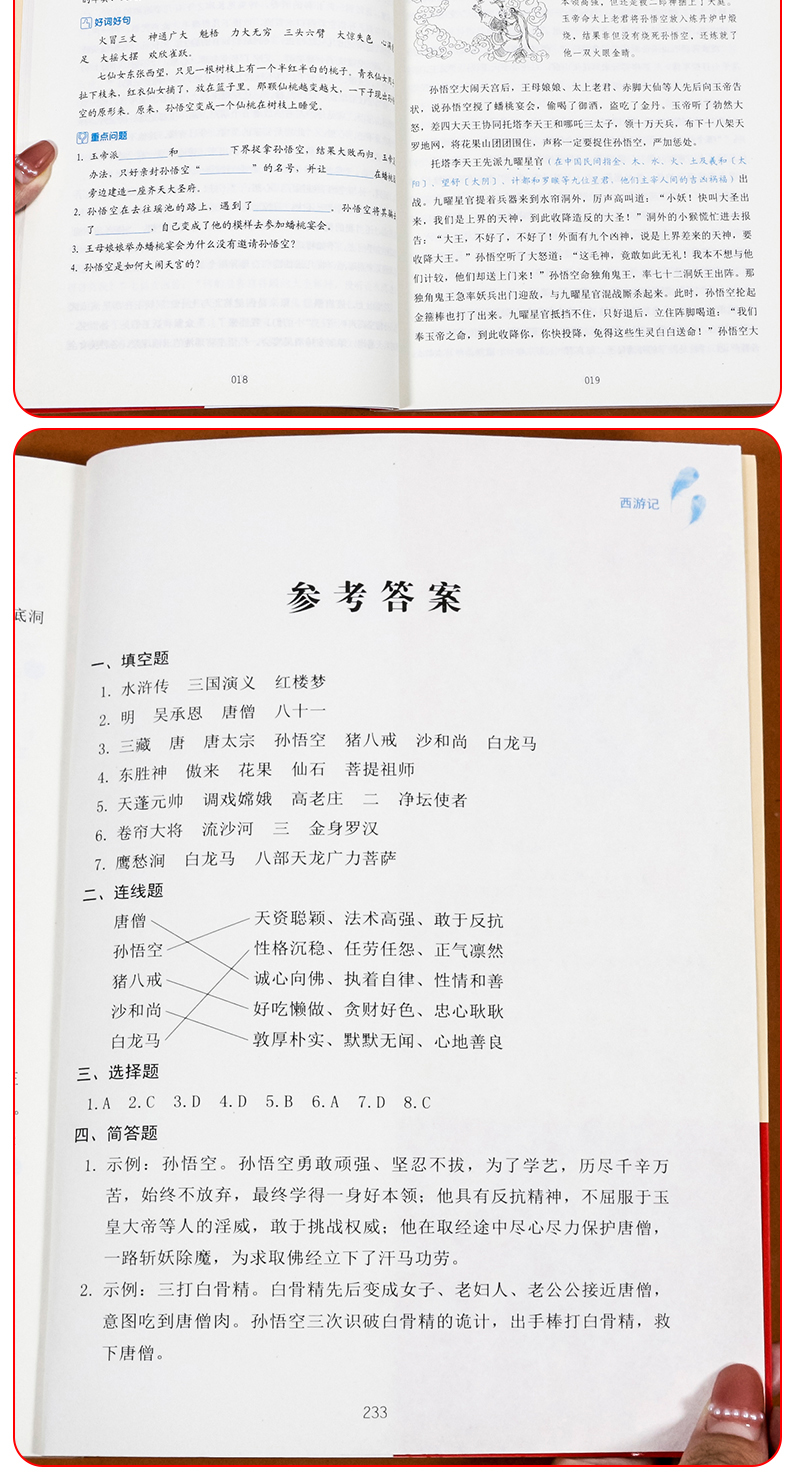 好词好句
火冒三丈 神通广大 魁梧 力大无穷 三头六臂 大惊失色 心满
足 大摇大摆 欢欣雀跃。
七仙女东张西望，只见一根树枝上有一个半红半白的桃子，青衣仙女用手
扯下枝来，红衣仙女摘了，放在篮子里。那颗仙桃越变越大，一下子现出孙悟
空的原形来。原来，孙悟空变成一个仙桃在树枝上睡觉。
重点问题
1. 玉帝派 和 下界捉拿孙悟空，结果大败而归。玉帝
办法，只好亲封孙悟空“ ”的名号，并让 在蟠桃
旁边建造一座齐天大圣府。
2. 孙悟空在去往瑶池的路上，遇到了 ，孙悟空将其骗
了 ，自己变成了他的模样去参加蟠桃宴会。
3. 王母娘娘举办蟠桃宴会为什么没有邀请孙悟空？
4. 孙悟空是如何大闹天宫的？
018
本领高强，但还是被二郎神捕上了天庭。
玉帝命太上老君将孙悟空放入炼丹炉中煅
烧，结果非但没有烧死孙悟空，还炼就了
他一双火眼金睛。
孙悟空大闹天宫后，王母娘娘、太上老君、赤脚大仙等人先后向玉帝告
状，说孙悟空搅了蟠桃宴会，偷喝了御酒，盗吃了金丹。玉帝听了勃然大
怒，差四大天王协同托塔李天王和哪吒三太子，领十万天兵，布下十八架天
罗地网，将花果山团团围住，声称一定要捉住孙悟空，严加惩处。
托塔李天王先派九曜星官（在中国民间指金、木、水、火、土及羲和〔太
阳〕、望舒〔太阴〕、计都和罗睺等九位星君，他们主宰人间的吉凶祸福）出
战。九曜星官提着兵器来到水帘洞外，厉声高叫道：“小妖！快叫大圣出
来，我们是上界的天神，到此收降造反的大圣！”洞外的小猴慌忙进去报
告：“大王，不好了，不好了！外面有九个凶神，说是上界差来的天神，要
收降大王。”孙悟空听了大怒道：“这毛神，竟敢如此无礼！我本不想与他
们计较，他们却送上门来！”孙悟空命独角鬼王，率七十二洞妖王出阵。那
独角鬼王急率妖兵出门迎敌，与九曜星官混战厮杀起来。此时，孙悟空抡起
金箍棒也打了出来。九曜星官抵挡不住，只好退后，立住阵脚喝道：“我们
奉玉帝之命，到此收降你，你快投降，免得这些生灵白白送命！”孙悟空大
019
底洞
西游记
参考答案
一、填空题
1. 水浒传 三国演义 红楼梦
2. 明 吴承恩 唐僧 八十一
3. 三藏 唐 唐太宗 孙悟空 猪八戒 沙和尚 白龙马
4. 东胜神 傲来 花果 仙石 菩提祖师
5. 天蓬元帅 调戏嫦娥 高老庄 二 净坛使者
6. 卷帘大将 流沙河 三 金身罗汉
7. 鹰愁涧 白龙马 八部天龙广力菩萨
二、连线题
唐僧 天资聪颖、法术高强、敢于反抗
孙悟空 性格沉稳、任劳任怨、正气凛然
猪八戒 诚心向佛、执着自律、性情和善
沙和尚 好吃懒做、贪财好色、忠心耿耿
白龙马 敦厚朴实、默默无闻、心地善良
三、选择题
1.A 2.C 3.D 4.D 5.B 6.A 7.D 8.C
四、简答题
1. 示例：孙悟空。孙悟空勇敢顽强、坚忍不拔，为了学艺，历尽千辛万
苦，始终不放弃，最终学得一身好本领；他具有反抗精神，不屈服于玉
皇大帝等人的淫威，敢于挑战权威；他在取经途中尽心尽力保护唐僧，
一路斩妖除魔，为求取佛经立下了汗马功劳。
2. 示例：三打白骨精。白骨精先后变成女子、老妇人、老公公接近唐僧，
意图吃到唐僧肉。孙悟空三次识破白骨精的诡计，出手棒打白骨精，救
下唐僧。
233